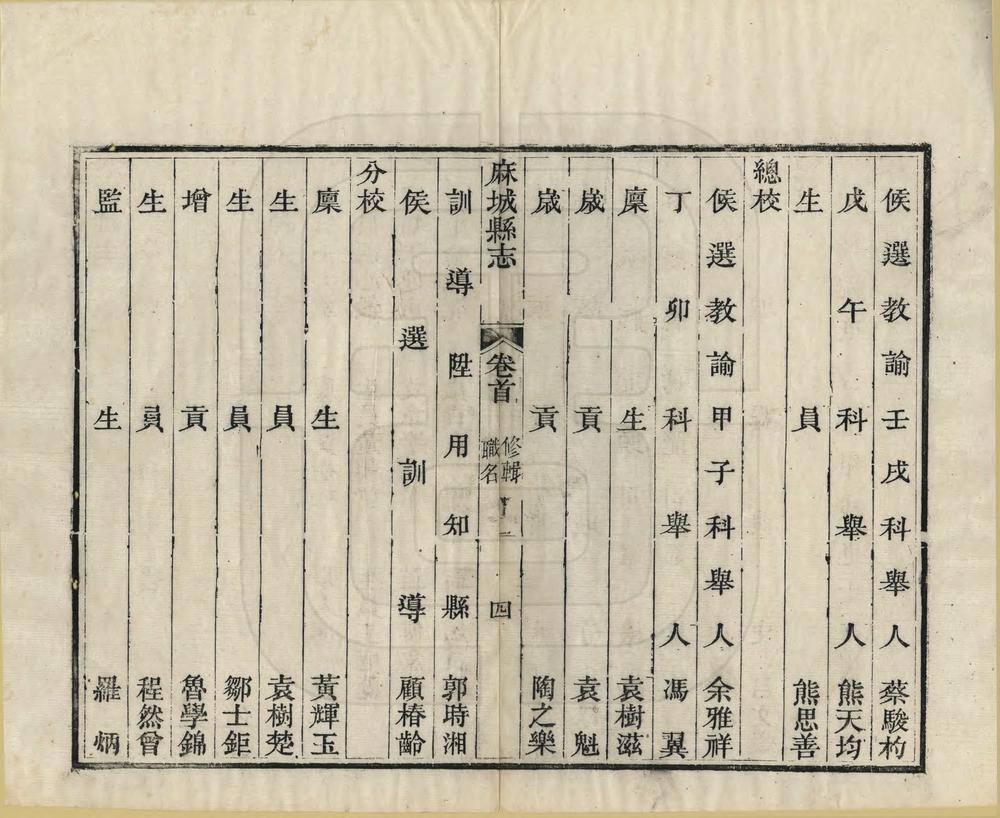 候選教諭壬戌科舉人蔡駿杓
戊午科舉人熊天均
生員熊思善
總校
候選教諭甲子科舉人余雅祥
丁卯科舉人馮翼
廩生袁樹滋
歲貢袁魁
歲貢陶之樂
麻城縣志 卷首 修輯職名 四
訓導陞用知縣郭時湘
候選訓導顧椿齡
分校
廩生黃輝玉
生員袁樹楚
生員鄒士鉅
增貢魯學錦
生員程然曾
監生羅炳